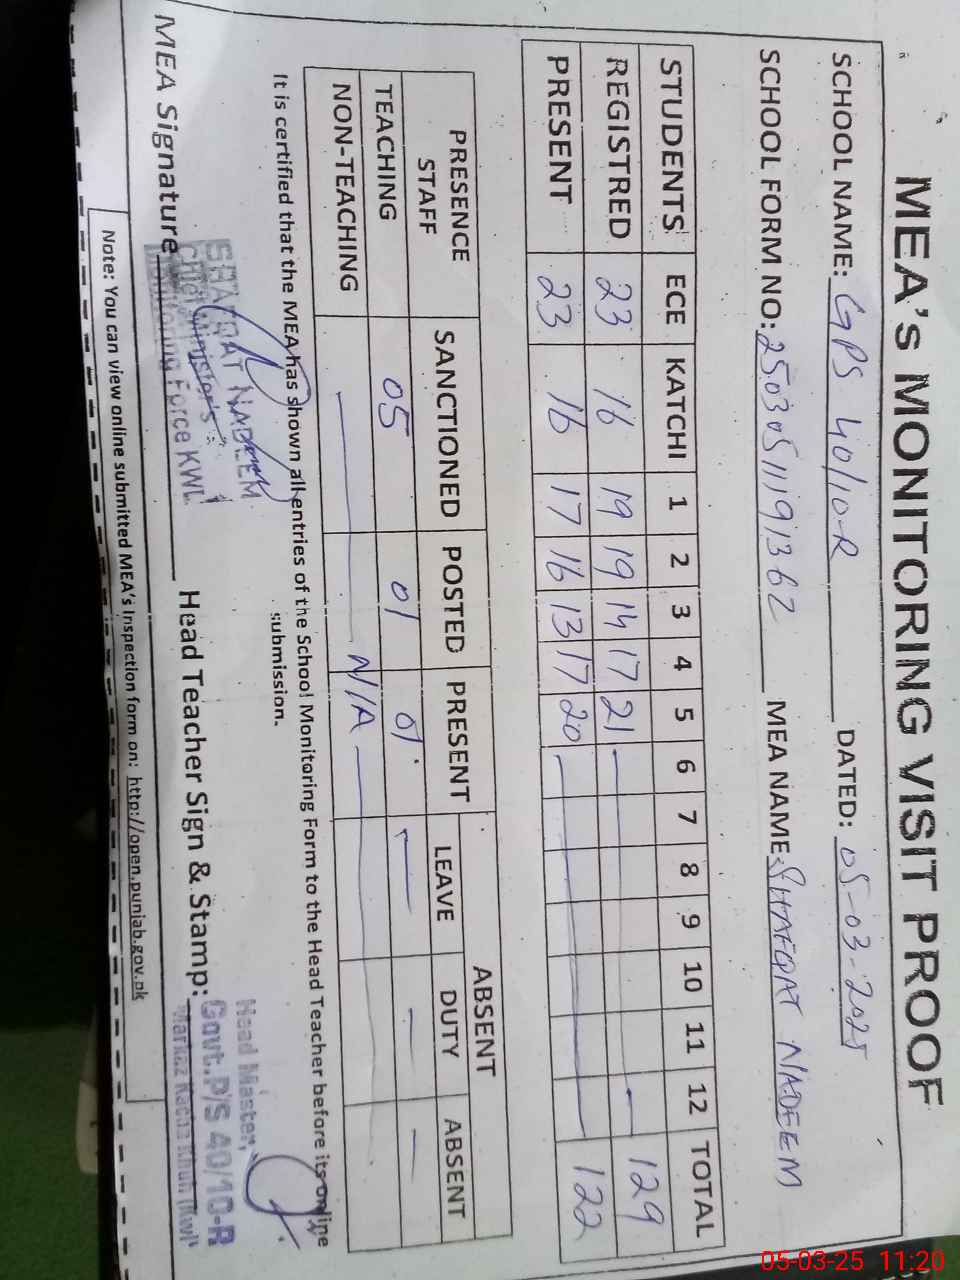 MEA's MONITORING VISIT PROOF
SCHOOL NAME: GPS 40/10-R DATED: 05-03-2025
SCHOOL FORM NO: 25030511191362 MEA NAME: SHAFQAT NADEEM
STUDENTS ECE KATCHI 1 2 3 4 5 6 7 8 9 10 11 12 TOTAL
REGISTRED 23 16 19 19 14 17 21 129
PRESENT 23 16 17 16 13 17 20 122
PRESENCE STAFF SANCTIONED POSTED PRESENT ABSENT
LEAVE DUTY ABSENT
TEACHING 05 01 01
NON-TEACHING N/A
It is certified that the MEA has shown all entries of the School Monitoring Form to the Head Teacher before its online
submission.
SHAFQAT NADEEM
Chief Minister's
Monitoring Force KWL
MEA Signature Head Teacher Sign & Stamp:
Head Master,
Govt.P/S 40/10-R
Markaz Kacha Khuh (Kwl)
Note: You can view online submitted MEA's Inspection form on: http://open.punjab.gov.pk
05-03-25 11:20